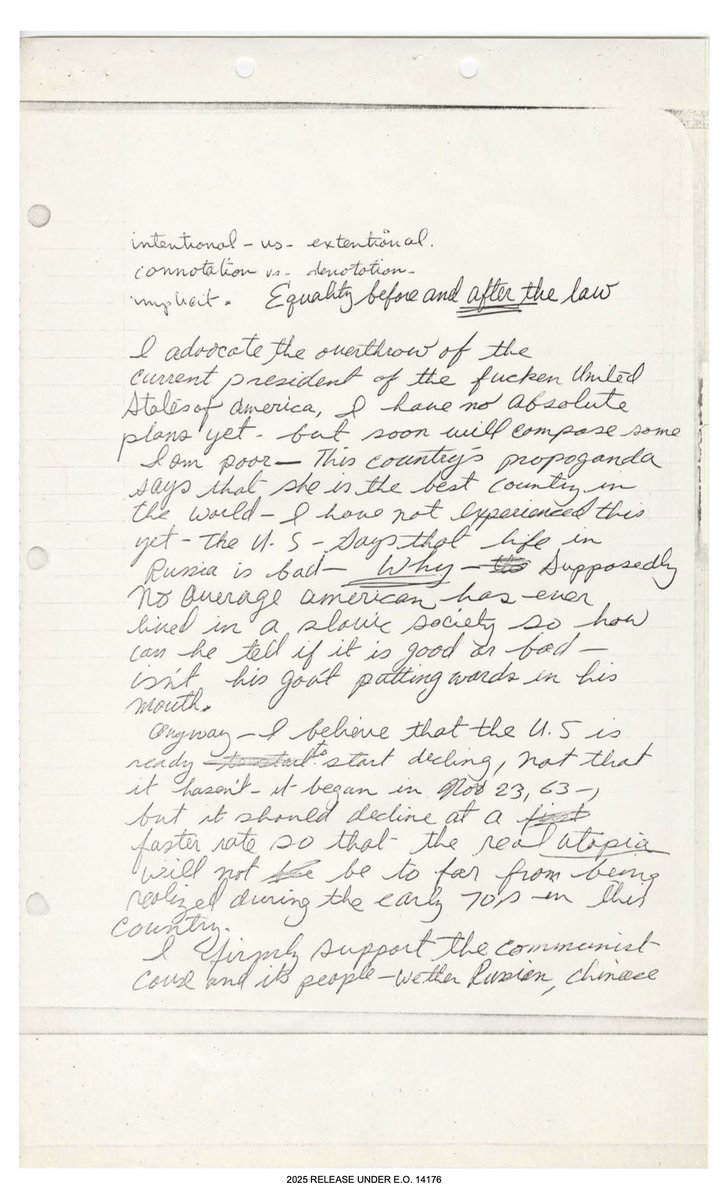 intentional - vs - extentional.
connotation vs. denotation -
implicit. Equality before and after the law
I advocate the overthrow of the
current president of the fucken United
States of america, I have no absolute
plans yet - but soon will compose some
I am poor — This country's propoganda
says that she is the best country in
the world - I have not experienced this
yet - The U.S - Says that life in
Russia is bad — Why — the Supposedly
No average american has ever
lived in a slavic society so how
can he tell if it is good or bad —
isn't his gov't putting words in his
mouth.
Anyway - I believe that the U.S is
ready to start to start decling, not that
it hasn't - it began in Nov 23, 63 -,
but it should decline at a
faster rate so that the real utopia
will not be to far from being
realized during the early 70,s - in this
country.
I firmly support the communist
cause and its people - wether Russian, chinese
2025 RELEASE UNDER E.O. 14176